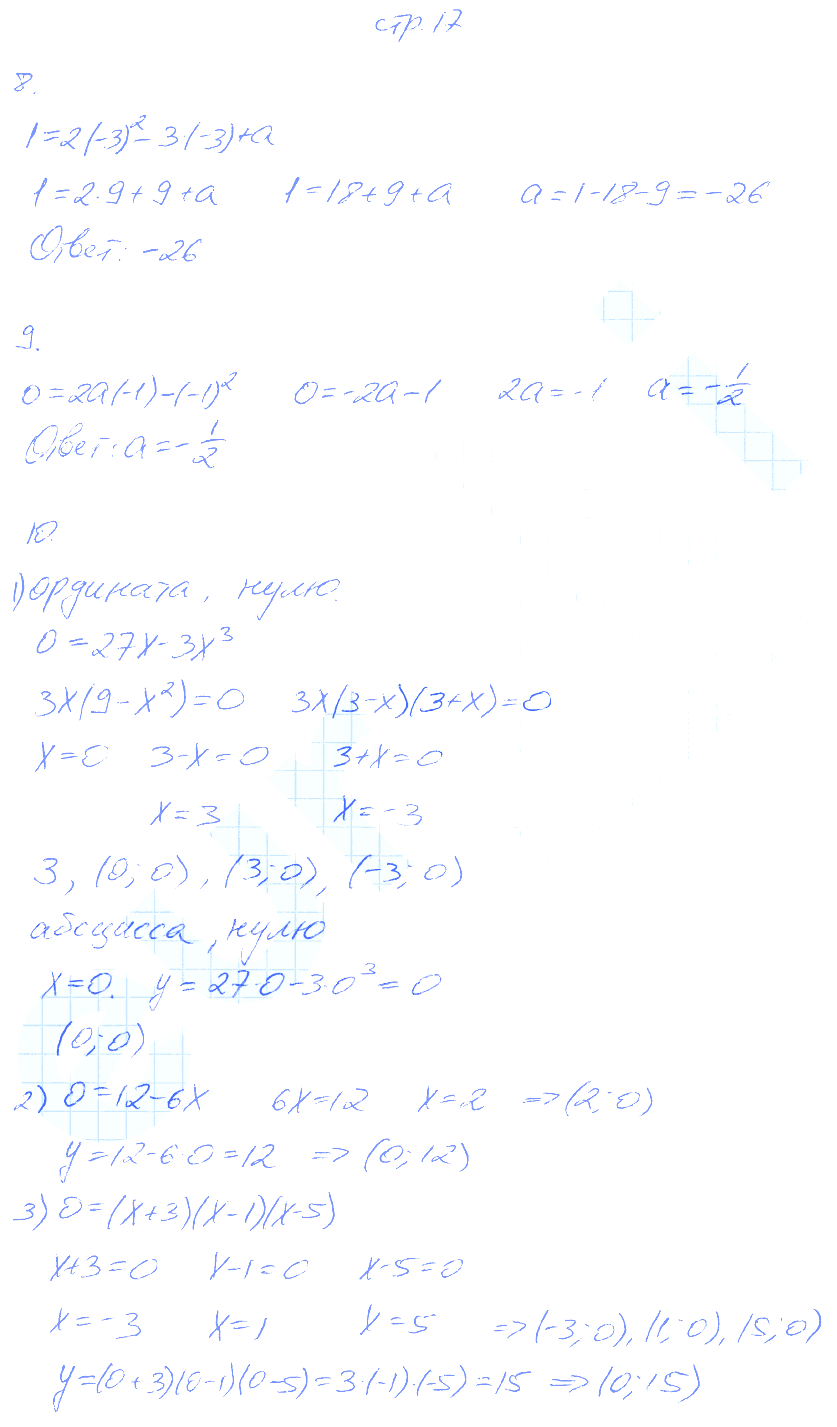 стр. 17
8.
1=2(-3)²-3·(-3)+a
1=2·9+9+a 1=18+9+a a=1-18-9=-26
Ответ: -26
9.
0=2a(-1)-(-1)² 0=-2a-1 2a=-1 a=-1/2
Ответ: a=-1/2
10.
1) ордината, нулю.
0=27x-3x³
3x(9-x²)=0 3x(3-x)(3+x)=0
x=0 3-x=0 3+x=0
x=3 x=-3
3, (0;0), (3;0), (-3;0)
абсцисса, нулю
x=0. y=27·0-3·0³=0
(0;0)
2) 0=12-6x 6x=12 x=2 =>(2;0)
y=12-6·0=12 => (0;12)
3) 0=(x+3)(x-1)(x-5)
x+3=0 x-1=0 x-5=0
x=-3 x=1 x=5 =>(-3;0), (1;0), (5;0)
y=(0+3)(0-1)(0-5)=3·(-1)·(-5)=15 =>(0;15)